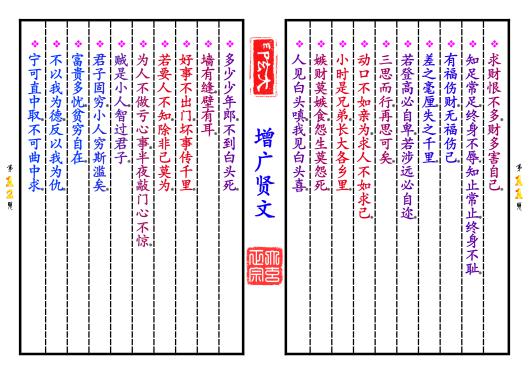 求财恨不多,财多害自己。
知足常足,终身不辱,知止常止,终身不耻。
有福伤财,无福伤己。
差之毫厘,失之千里。
若登高必自卑,若涉远必自迩。
三思而行,再思可矣。
动口不如亲为,求人不如求己。
小时是兄弟,长大各乡里。
嫉财莫嫉食,怨生莫怨死。
人见白头嗔,我见白头喜。
增广贤文
多少少年郎,不到白头死。
墙有缝,壁有耳。
好事不出门,坏事传千里。
若要人不知,除非己莫为。
为人不做亏心事,半夜敲门心不惊。
贼是小人,智过君子。
君子固穷,小人穷斯滥矣。
富贵多忧,贫穷自在。
不以我为德,反以我为仇。
宁可直中取,不可曲中求。